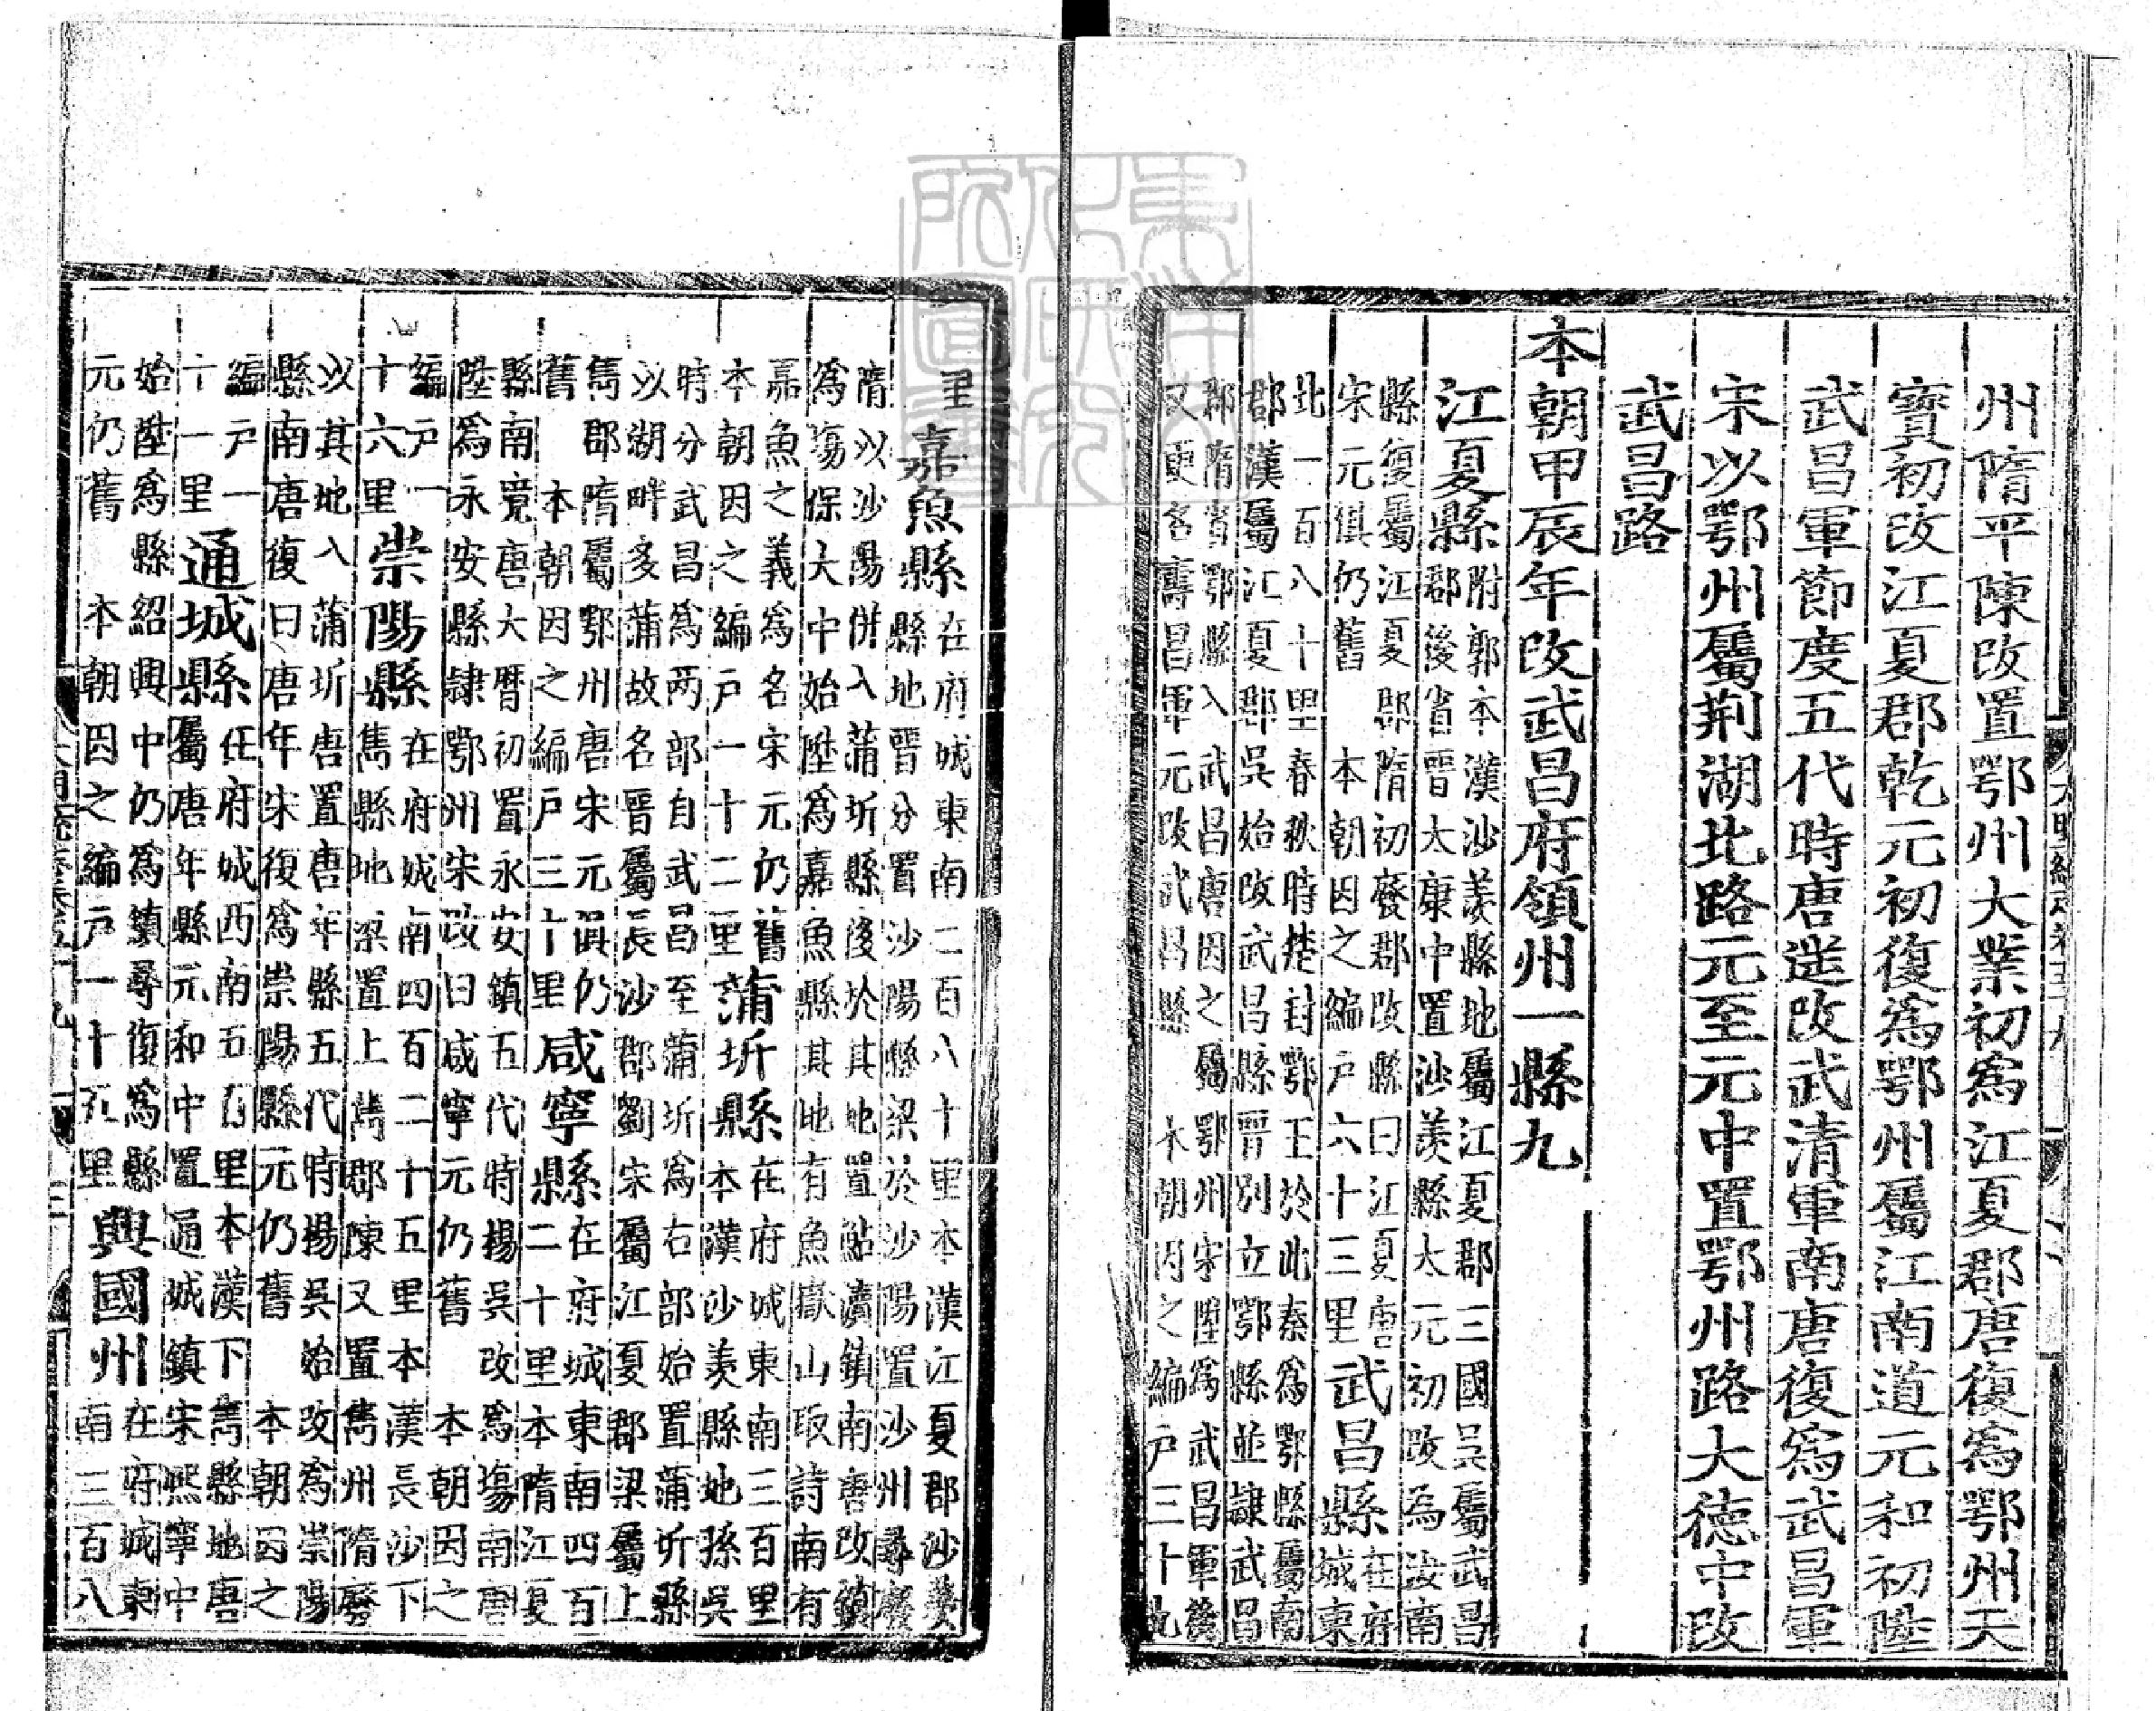 州隋平陳改置鄂州大業初為江夏郡唐復為鄂州天
寶初改江夏郡乾元初復為鄂州屬江南道元和初陞
武昌軍節度五代時唐遥改武清軍南唐復為武昌軍
宋以鄂州屬荆湖北路元至元中置鄂州路大德中改
武昌路
本朝甲辰年改武昌府領州一縣九
江夏縣
附郭本漢沙羨縣地屬江夏郡三國吳屬武昌
郡後省晉太康中置沙羨縣太元初改為汝南
縣復屬江夏郡隋初廢郡改縣曰江夏唐
宋元俱仍舊 本朝因之編戶六十三里
武昌縣
在府
城東
北一百八十里春秋時楚封鄂王於此秦為鄂縣屬南
郡漢屬江夏郡吳始改武昌縣晉別立鄂縣並隷武昌
郡隋省鄂縣入武昌唐因之屬鄂州宋陞為武昌軍後
又更名壽昌軍元改武昌縣 本朝因之編戶三十九
里
嘉魚縣
在府城東南二百八十里本漢江夏郡沙羨
縣地晉分置沙陽縣梁於沙陽置沙州尋廢
隋以沙陽併入蒲圻縣後於其地置鮎瀆鎮南唐改鎮
為塲保大中始陞為嘉魚縣其地有魚嶽山取詩南有
嘉魚之義為名宋元仍舊
本朝因之編戶一十二里
蒲圻縣
在府城東南三百里
本漢沙羨縣地孫吳
時分武昌為两部自武昌至蒲圻為右部始置蒲圻縣
以湖畔多蒲故名晉屬長沙郡劉宋屬江夏郡梁屬上
雋郡隋屬鄂州唐宋元俱仍
舊 本朝因之編戶三十里
咸寧縣
在府城東南四百
二十里本隋江夏
縣南境唐大曆初置永安鎮五代時楊吳改為塲南唐
陞為永安縣隷鄂州宋改曰咸寧元仍舊 本朝因之
編戶一
十六里
崇陽縣
在府城南四百二十五里本漢長沙下
雋縣地梁置上雋郡陳又置雋州隋廢
以其地入蒲圻唐置唐年縣五代時楊吳始改為崇陽
縣南唐復曰唐年宋復為崇陽縣元仍舊 本朝因之
編戶一
十一里
通城縣
在府城西南五百里本漢下雋縣地唐
屬唐年縣元和中置通城鎮宋熙寧中
始陞為縣紹興中仍為鎮尋復為縣
元仍舊 本朝因之編戶一十五里
興國州
在府城東
南三百八